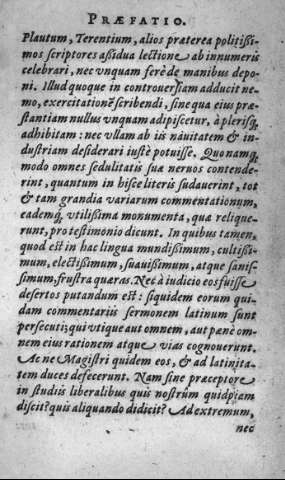 PRÆFATIO.
Plautum, Terentium, alios præterea politißi-
mos scriptores aßidua lectione ab innumeris
celebrari, nec vnquam ferè de manibus depo-
ni. Illud quoque in controuersiam adducit ne-
mo, exercitationē scribendi, sine qua eius præ-
stantiam nullus vnquam adipiscetur, à plerisq;
adhibitam: nec vllam ab iis nauitatem & in-
dustriam desiderari iustè potuisse. Quo namq;
modo omnes sedulitatis suæ neruos contende-
rint, quantum in hisce literis sudauerint, tot
& tam grandia variarum commentationum,
eademq; vtilißima monumenta, quæ relique-
runt, pro testimonio dicunt. In quibus tamen,
quod est in hac lingua mundißimum, cultißi-
mum, electißimum, suauißimum, atque sanis-
simum, frustra quæras. Nec à iudicio eos fuisse
desertos putandum est: siquidem eorum qui-
dam commentariis sermonem latinum sunt
persecuti; qui vtique aut omnem, aut pænè om-
nem eius rationem atque vias cognouerunt.
Ac ne Magistri quidem eos, & ad latinita-
tem duces defecerunt. Nam sine præceptore
in studiis liberalibus quis nostrûm quidpiam
discit? quis aliquando didicit? Ad extremum,
nec